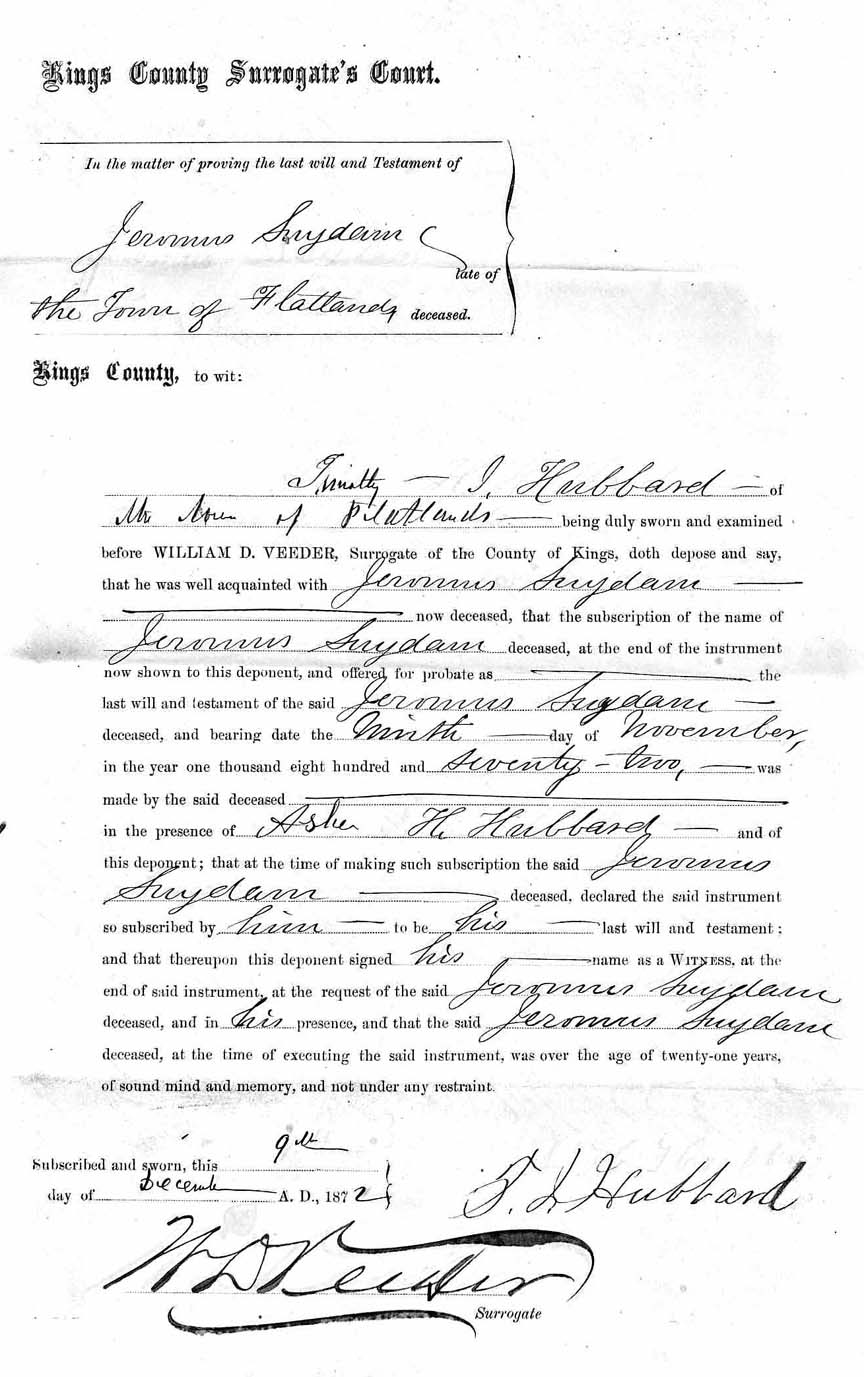 Kings County Surrogate's Court.
In the matter of proving the last will and Testament of
Jeromus Suydam
late of
the Town of Flatlands deceased.
Kings County, to wit:
Timothy I. Hubbard of
the Town of Flatlands being duly sworn and examined
before WILLIAM D. VEEDER, Surrogate of the County of Kings, doth depose and say,
that he was well acquainted with Jeromus Suydam
now deceased, that the subscription of the name of
Jeromus Suydam deceased, at the end of the instrument
now shown to this deponent, and offered for probate as the
last will and testament of the said Jeromus Suydam
deceased, and bearing date the Ninth day of November,
in the year one thousand eight hundred and seventy-two, was
made by the said deceased
in the presence of Asher H. Hubbard and of
this deponent; that at the time of making such subscription the said Jeromus
Suydam deceased, declared the said instrument
so subscribed by him to be his last will and testament;
and that thereupon this deponent signed his name as a WITNESS, at the
end of said instrument, at the request of the said Jeromus Suydam
deceased, and in his presence, and that the said Jeromus Suydam
deceased, at the time of executing the said instrument, was over the age of twenty-one years,
of sound mind and memory, and not under any restraint.
Subscribed and sworn, this 9th
day of December A. D., 1872
T. I. Hubbard
W D Veeder
Surrogate